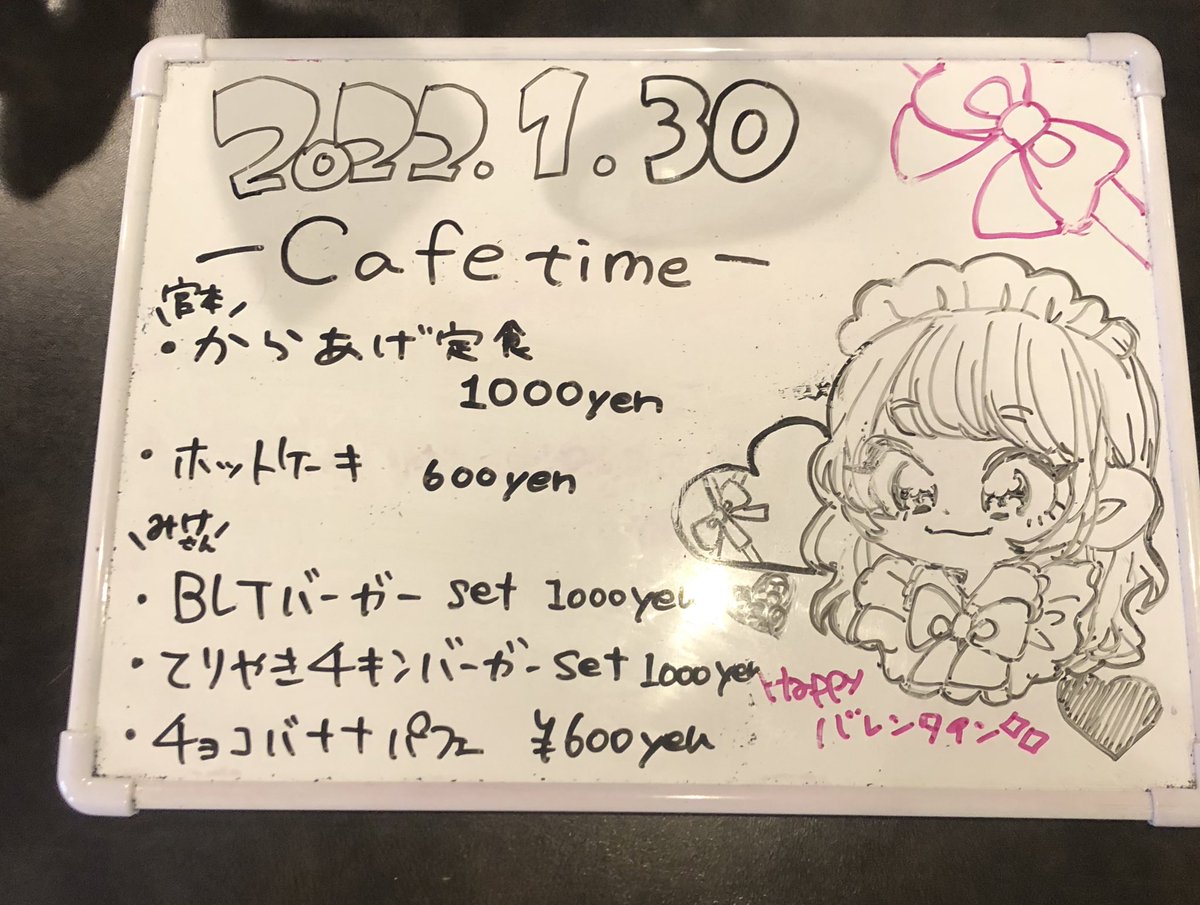 2022.1.30
-Cafe time-
\宮本/
・からあげ定食
1000yen
・ホットケーキ 600yen
\みけさん/
・BLTバーガー set 1000yen
・てりやきチキンバーガー set 1000yen
・チョコバナナパフェ ¥600yen
Happy
バレンタイン